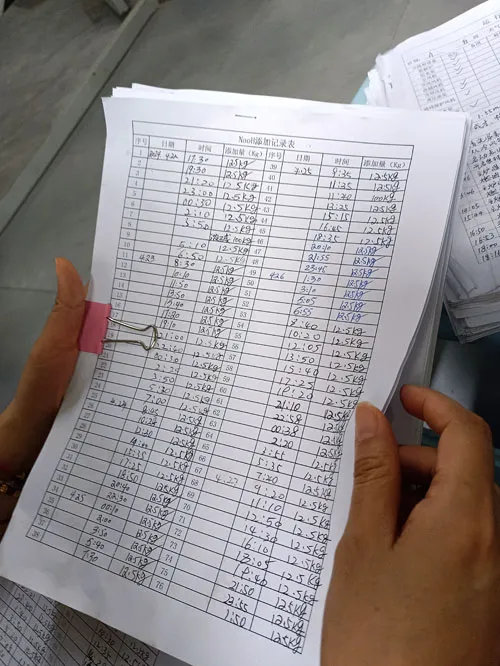 NaoH添加记录表
序号 日期 时间 添加量（Kg） 序号 日期 时间 添加量（Kg）
1 2024 4.22 17:30 12.5kg 39 4.25 9:35 12.5kg
2 19:30 12.5kg 40 11:25 12.5kg
3 21:20 12.5kg 41 11:20 100kg
4 23:00 12.5kg 42 13:25 12.5kg
5 00:30 12.5kg 43 15:15 12.5kg
6 2:10 12.5kg 44 16:45 12.5kg
7 3:50 12.5kg 45 18:35 12.5kg
8 100kg 46 20:10 12.5kg
9 5:10 12.5kg 47 21:55 12.5kg
10 6:50 12.5kg 48 23:45 12.5kg
11 4.23 8:30 12.5kg 49 4.26 1:30 12.5kg
12 10:10 12.5kg 50 3:10 12.5kg
13 11:50 12.5kg 51 5:05 12.5kg
14 13:50 12.5kg 52 6:55 12.5kg
15 15:40 12.5kg 53 8:40 12.5kg
16 17:20 12.5kg 54 10:20 12.5kg
17 19:10 12.5kg 55 12:05 12.5kg
21:00 12.5kg 56 13:50 12.5kg
12.5kg 57 15:40 12.5kg
12.5kg 58 17:25 12.5kg
21 2:20 12.5kg 59 19:20 12.5kg
22 3:50 12.5kg 60 21:10 12.5kg
23 5:20 12.5kg 61 22:58 12.5kg
24 7:00 12.5kg 62 00:38 12.5kg
25 4.24 8:45 12.5kg 63 2:20 12.5kg
26 10:25 12.5kg 64 12.5kg
27 12:20 12.5kg 65 5:35 12.5kg
28 12.5kg 66 7:20 12.5kg
29 15:35 12.5kg 67 4.27 9:20 12.5kg
30 17:25 12.5kg 68 11:10 12.5kg
31 18:50 12.5kg 69 12:50 12.5kg
32 20:40 12.5kg 70 14:30 12.5kg
33 22:30 12.5kg 71 16:10 12.5kg
34 4.25 00:10 12.5kg 72 18:05 12.5kg
35 2:00 12.5kg 73 19:40 12.5kg
36 3:50 12.5kg 74 21:50 12.5kg
37 5:40 12.5kg 75 12.5kg
38 7:30 12.5kg 76 1:50 12.5kg